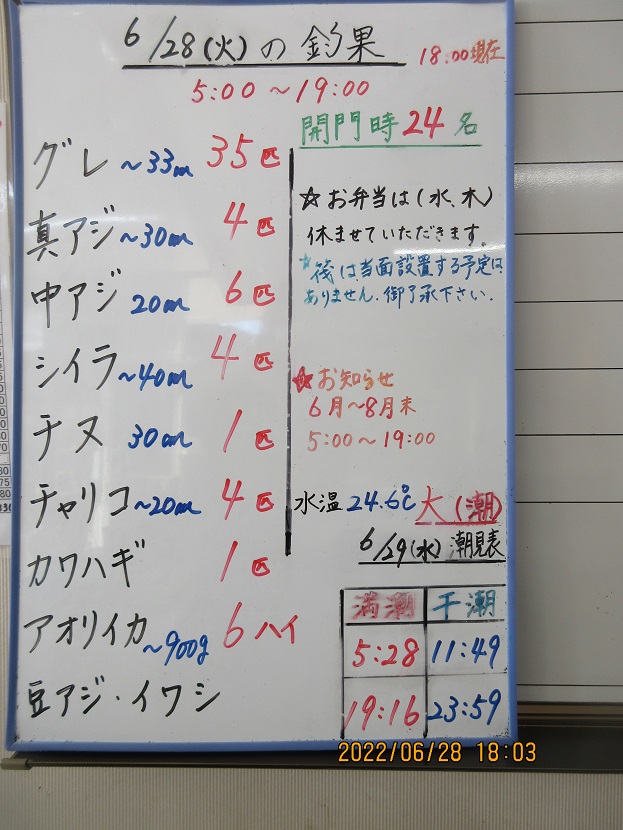 6/28(火)の釣果
18:00現在
5:00〜19:00
開門時24名
グレ 〜33cm 35匹
真アジ 〜30cm 4匹
中アジ 20cm 6匹
シイラ 〜40cm 4匹
チヌ 30cm 1匹
チャリコ 〜20cm 4匹
カワハギ 1匹
アオリイカ 〜900g 6ハイ
豆アジ・イワシ
☆お弁当は(水、木)
休ませていただきます。
☆筏は当面設置する予定は
ありません。御了承下さい。
☆お知らせ
6月〜8月末
5:00〜19:00
水温 24.6℃ 大(潮)
6/29(水)潮見表
満潮 干潮
5:28 11:49
19:16 23:59
2022/06/28 18:03